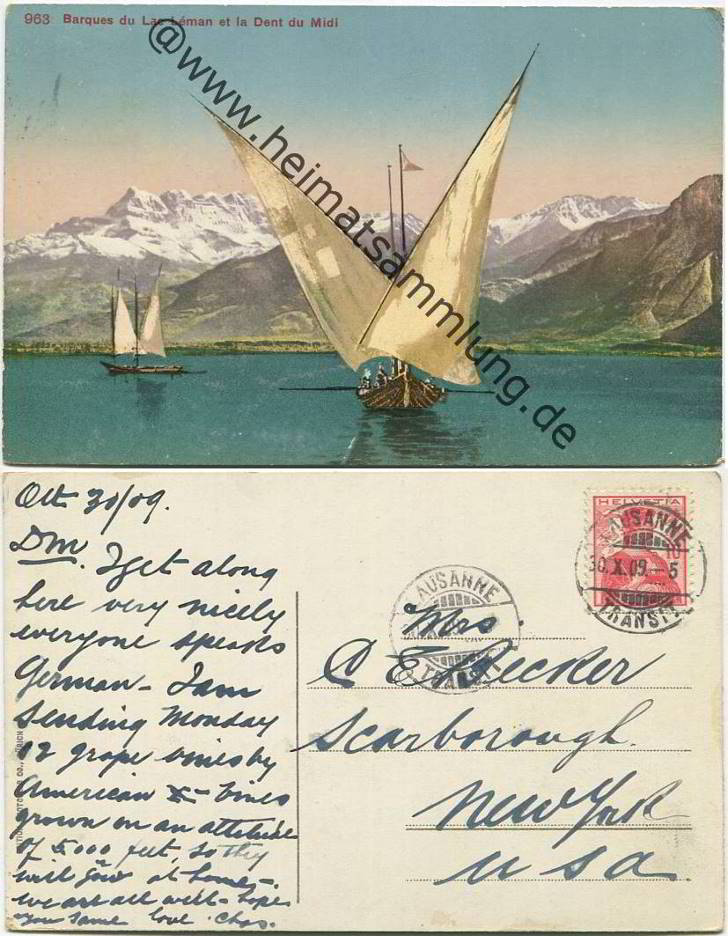 963 Barques du Lac Léman et la Dent du Midi
@www.heimatsammlung.de
Oct 30/09.
Dm. I get along
here very nicely
everyone speaks
German - I am
sending Monday
12 grape vines by
American X - Vines
grown on an attitude
of 5000 feet, so they
will grow at home -
we are all well - hope
you same love Chas.
HELVETIA
10
LAUSANNE
30.X.09.-5
TRANSIT
LAUSANNE
TRANSIT
Mrs.
C E Recker
Scarborough.
New York
U S A